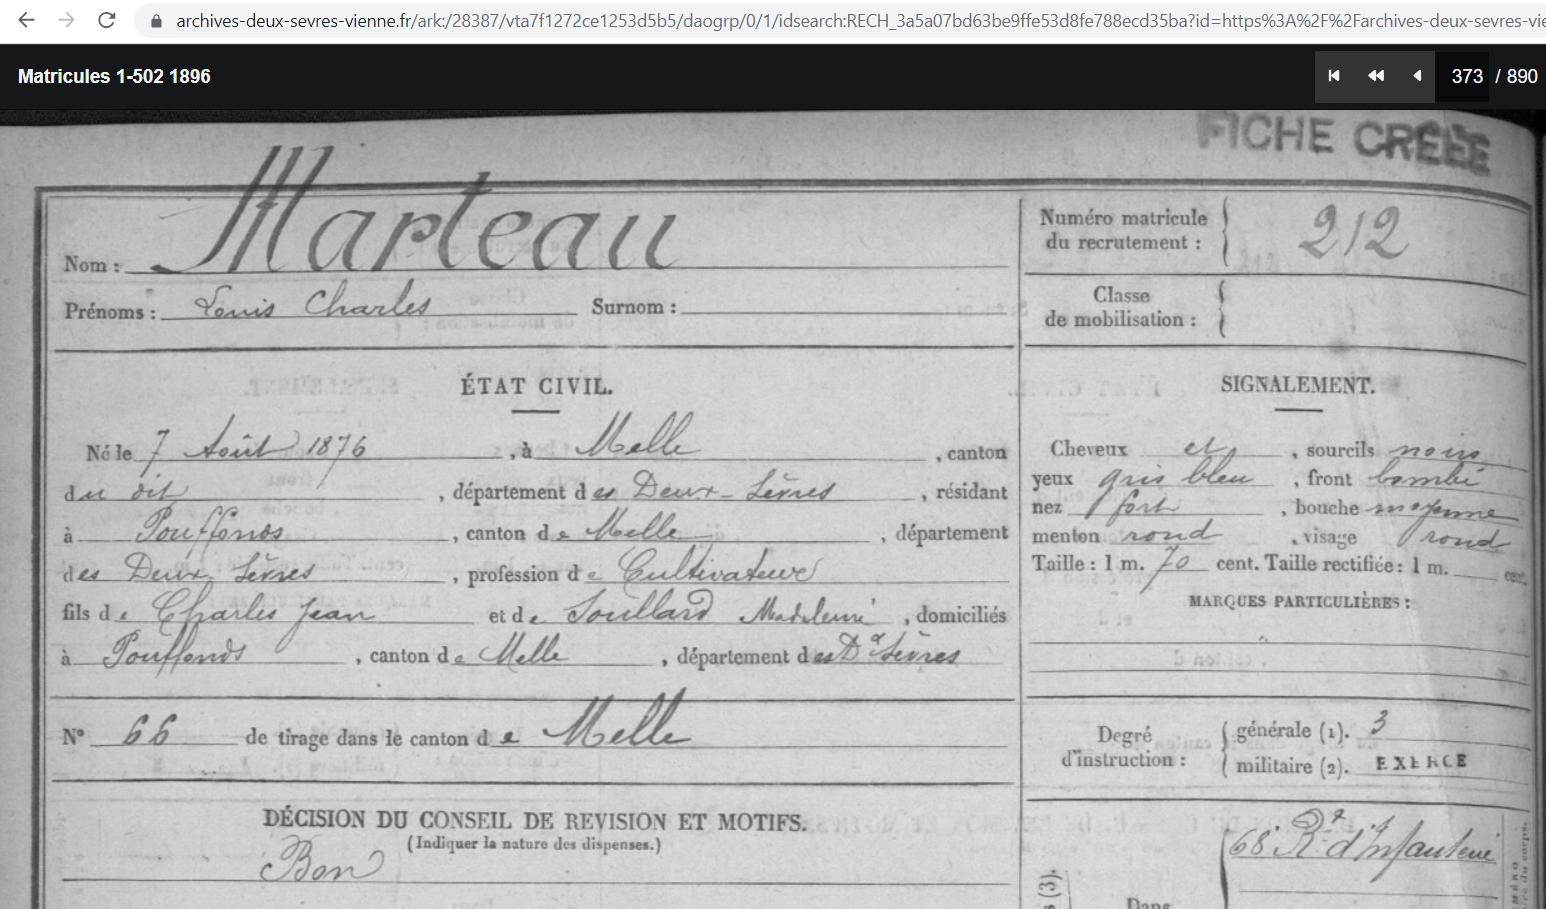 archives-deux-sevres-vienne.fr/ark:/28387/vta7f1272ce1253d5b5/daogrp/0/1/idsearch:RECH_3a5a07bd63be9ffe53d8fe788ecd35ba?id=https%3A%2F%2Farchives-deux-sevres-vie
Matricules 1-502 1896
373 / 890
FICHE CRÉÉE
Nom : Marteau
Prénoms : Louis Charles Surnom :
Numéro matricule du recrutement : 212
Classe de mobilisation :
ÉTAT CIVIL.
Né le 7 Août 1876, à Melle, canton
du dit, département des Deux-Sèvres, résidant
à Pouffonds, canton de Melle, département
des Deux-Sèvres, profession de Cultivateur
fils de Charles Jean et de Soullard Madeleine, domiciliés
à Pouffonds, canton de Melle, département des Dx Sèvres
SIGNALEMENT.
Cheveux et, sourcils noirs
yeux gris bleu, front bombé
nez fort, bouche moyenne
menton rond, visage rond
Taille : 1 m. 70 cent. Taille rectifiée : 1 m. cent.
MARQUES PARTICULIÈRES :
N° 66 de tirage dans le canton de Melle
Degré d'instruction : générale (1). 3
militaire (2). EXERCÉ
DÉCISION DU CONSEIL DE REVISION ET MOTIFS.
(Indiquer la nature des dispenses.)
Bon
68e Rt d'Infanterie
(3).
Dans